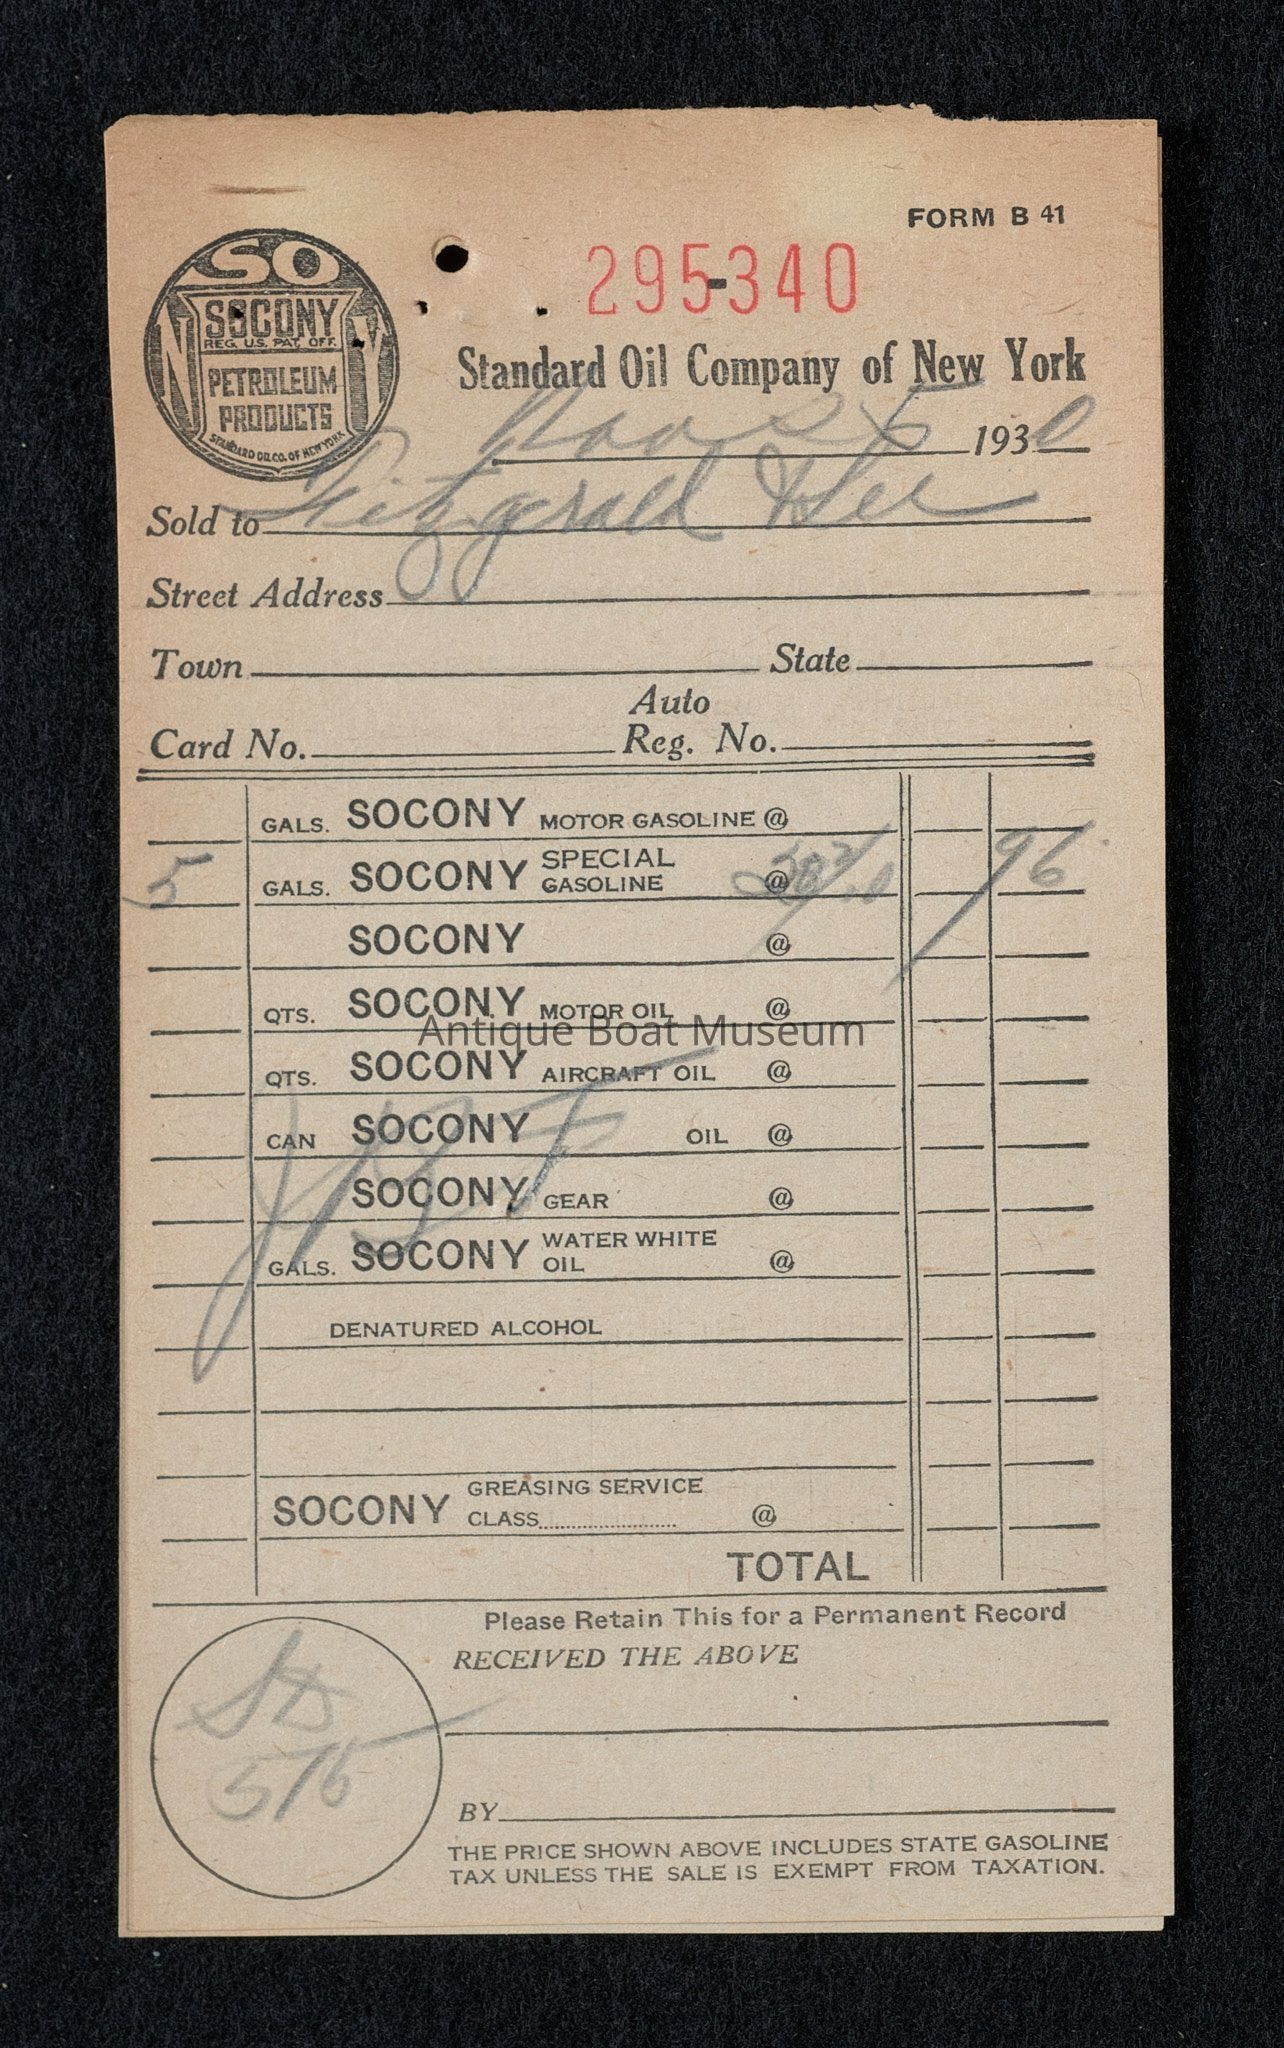 FORM B 41
SO
NY
SOCONY
REG. U.S. PAT. OFF.
PETROLEUM
PRODUCTS
STANDARD OIL CO. OF NEW YORK
295-340
Standard Oil Company of New York
1930
Sold to Fitzgerald
Street Address
Town State
Auto
Card No. Reg. No.
GALS. SOCONY MOTOR GASOLINE @
5 GALS. SOCONY SPECIAL GASOLINE @ 96
SOCONY @
QTS. SOCONY MOTOR OIL @
Antique Boat Museum
QTS. SOCONY AIRCRAFT OIL @
CAN SOCONY OIL @
SOCONY GEAR @
GALS. SOCONY WATER WHITE OIL @
DENATURED ALCOHOL
SOCONY GREASING SERVICE
CLASS @
TOTAL
Please Retain This for a Permanent Record
RECEIVED THE ABOVE
BY
THE PRICE SHOWN ABOVE INCLUDES STATE GASOLINE
TAX UNLESS THE SALE IS EXEMPT FROM TAXATION.